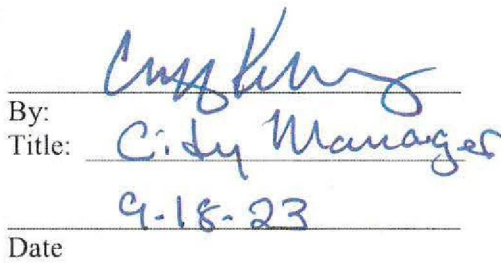 By:
Title: City Manager
9-18-23
Date